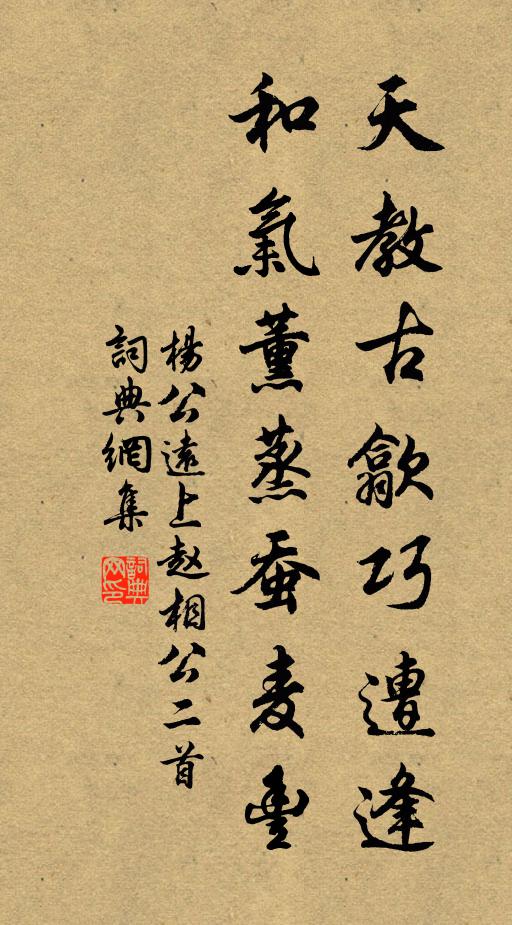 天教古歙巧遭逢
和氣薰蒸蚕麦豊
楊公遠上赵相公二首
詞典網集
詞典网印